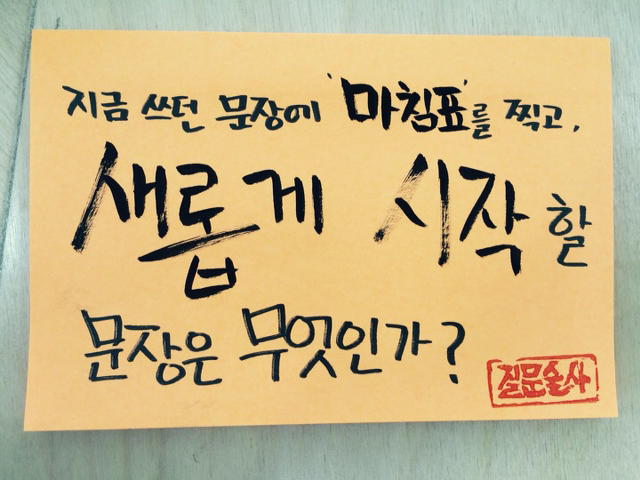 지금 쓰던 문장에 '마침표'를 찍고,
새롭게 시작할
문장은 무엇인가?
질문술사